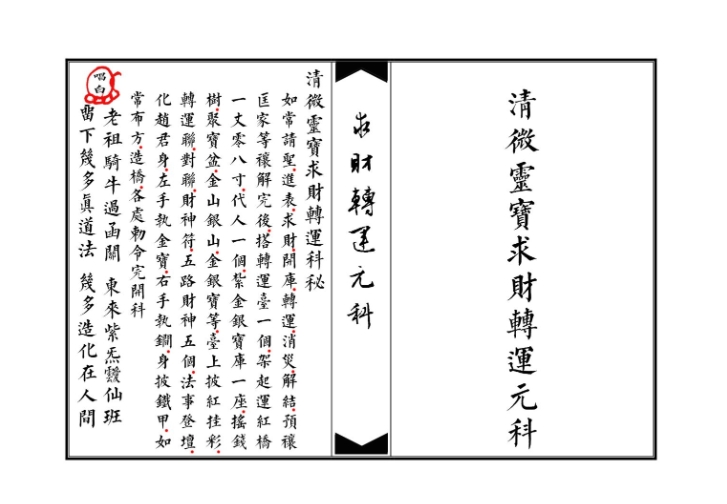 清微靈寶求財轉運元科
求財轉運元科
清微靈寶求財轉運科秘
如常請聖進表求財開庫轉運消災解結預禳
匡家等禳解完後搭轉運臺一個架起運紅橋
一丈零八寸代人一個紮金銀寶庫一座搖錢
樹聚寶盆金山銀山金銀寶等臺上披紅挂彩
轉運聯對聯財神符五路財神五個法事登壇
化趙君身左手執金寶右手執鐧身披鐵甲如
常布方造橋各處勅令完開科
唱白
老祖騎牛過函關 東來紫炁靉仙班
畱下幾多眞道法 幾多造化在人間